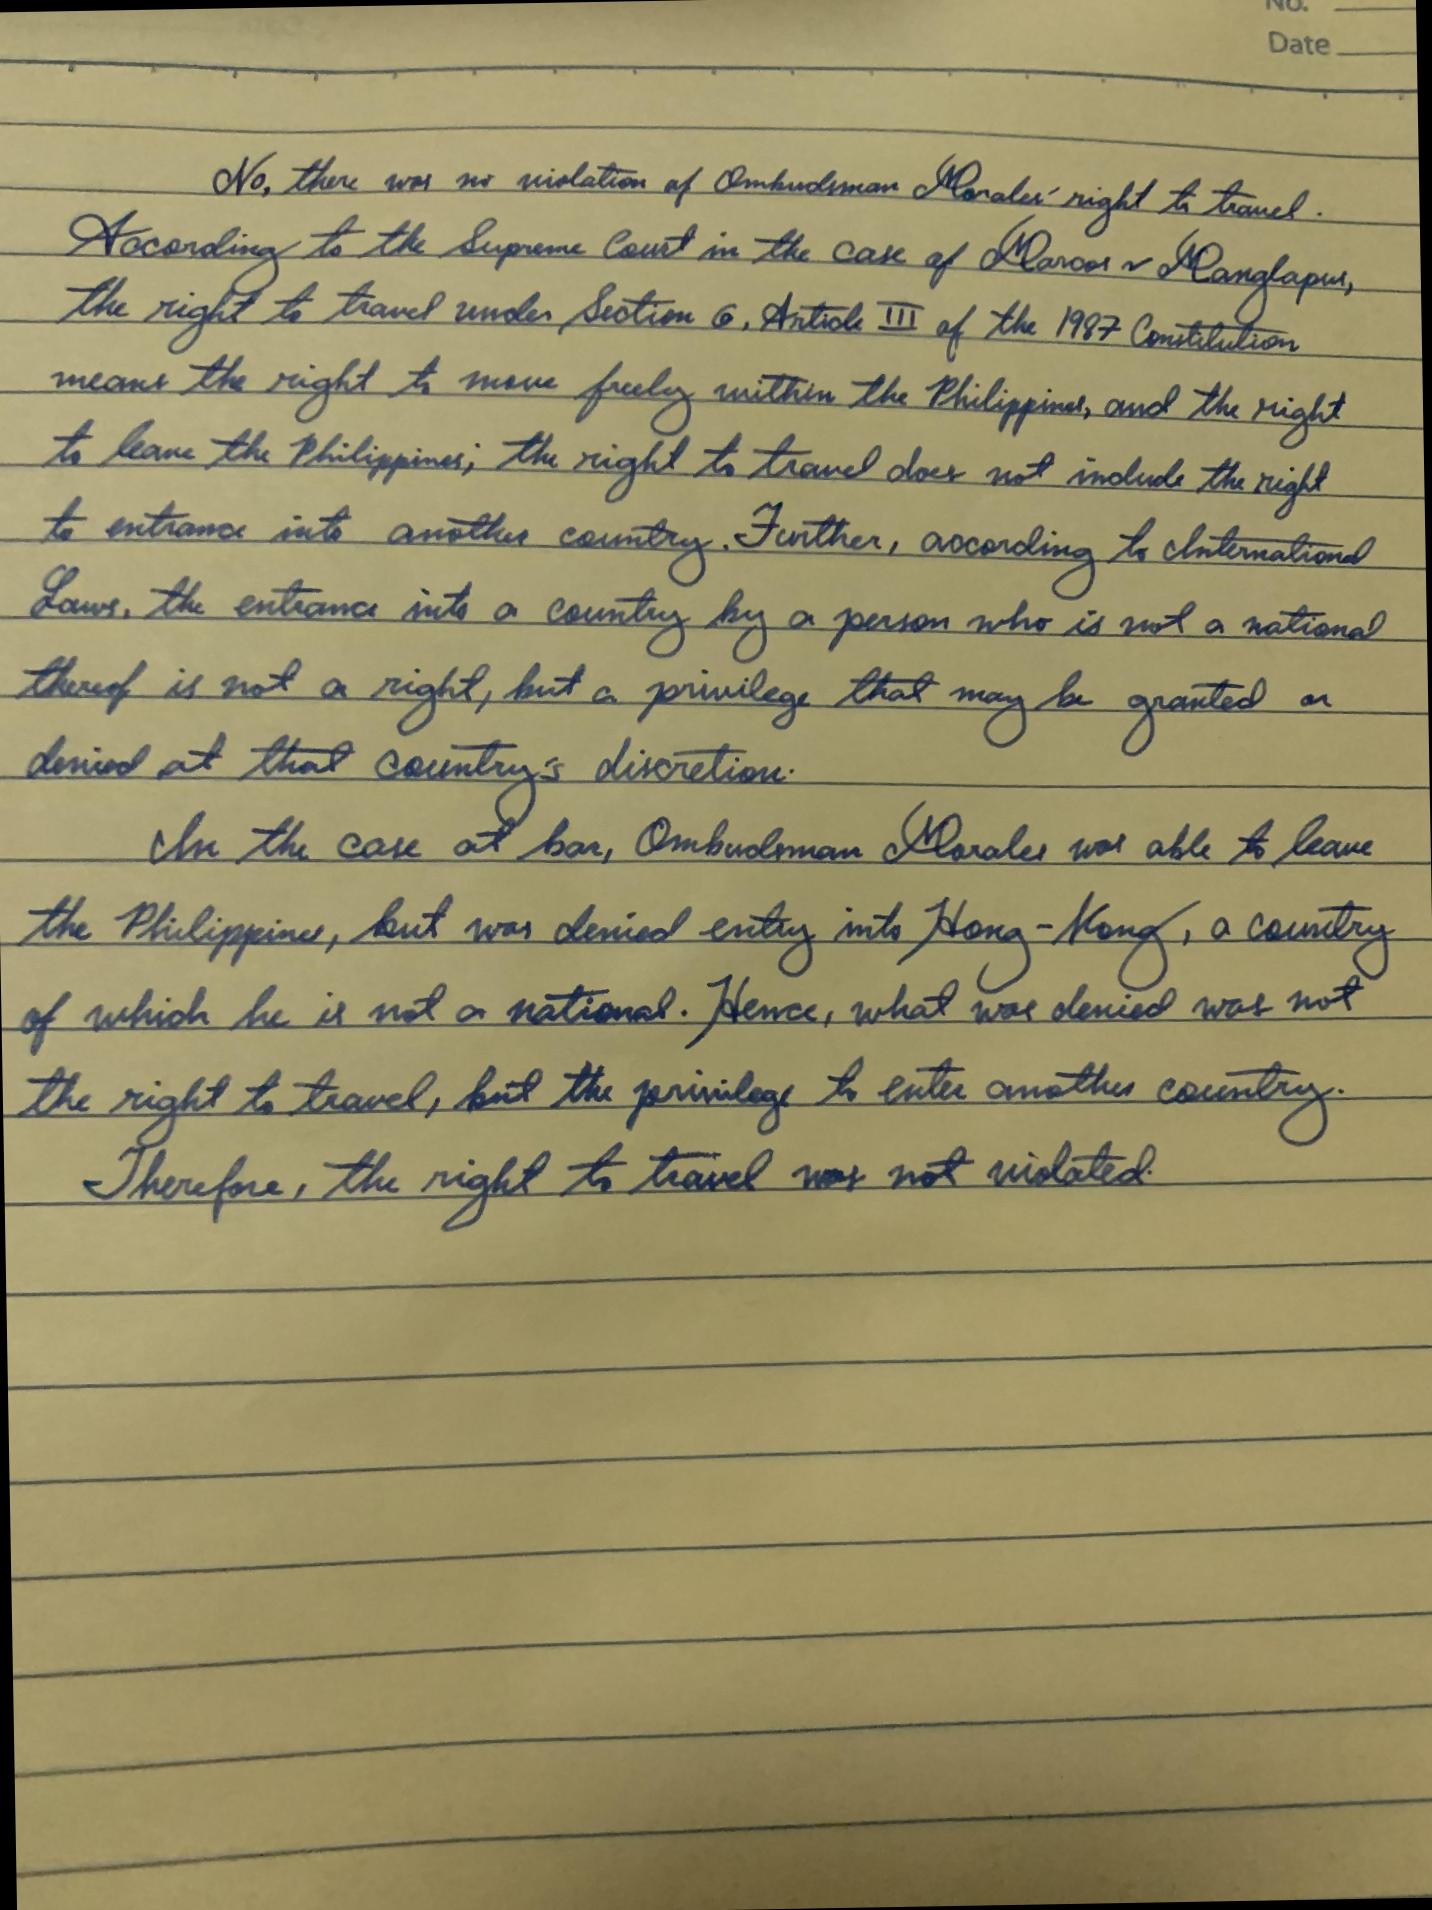 No.
Date
No, there was no violation of Ombudsman Morales' right to travel.
According to the Supreme Court in the case of Marcos v Manglapus,
the right to travel under Section 6, Article III of the 1987 Constitution
means the right to move freely within the Philippines, and the right
to leave the Philippines; the right to travel does not include the right
to entrance into another country. Further, according to International
Laws, the entrance into a country by a person who is not a national
thereof is not a right, but a privilege that may be granted or
denied at that country's discretion.
In the case at bar, Ombudsman Morales was able to leave
the Philippines, but was denied entry into Hong-Kong, a country
of which he is not a national. Hence, what was denied was not
the right to travel, but the privilege to enter another country.
Therefore, the right to travel was not violated.